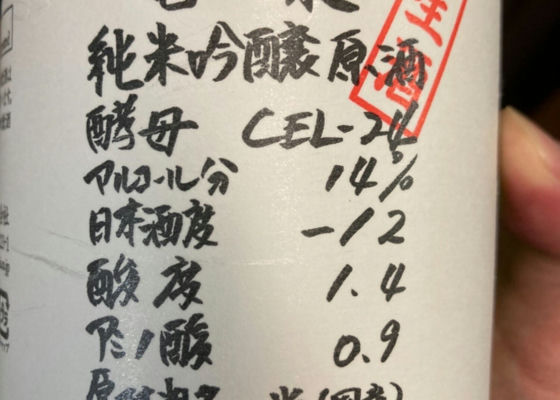 純米吟醸原酒
生酒
酵母 CEL-24
アルコール分 14%
日本酒度 -12
酸度 1.4
アミノ酸 0.9